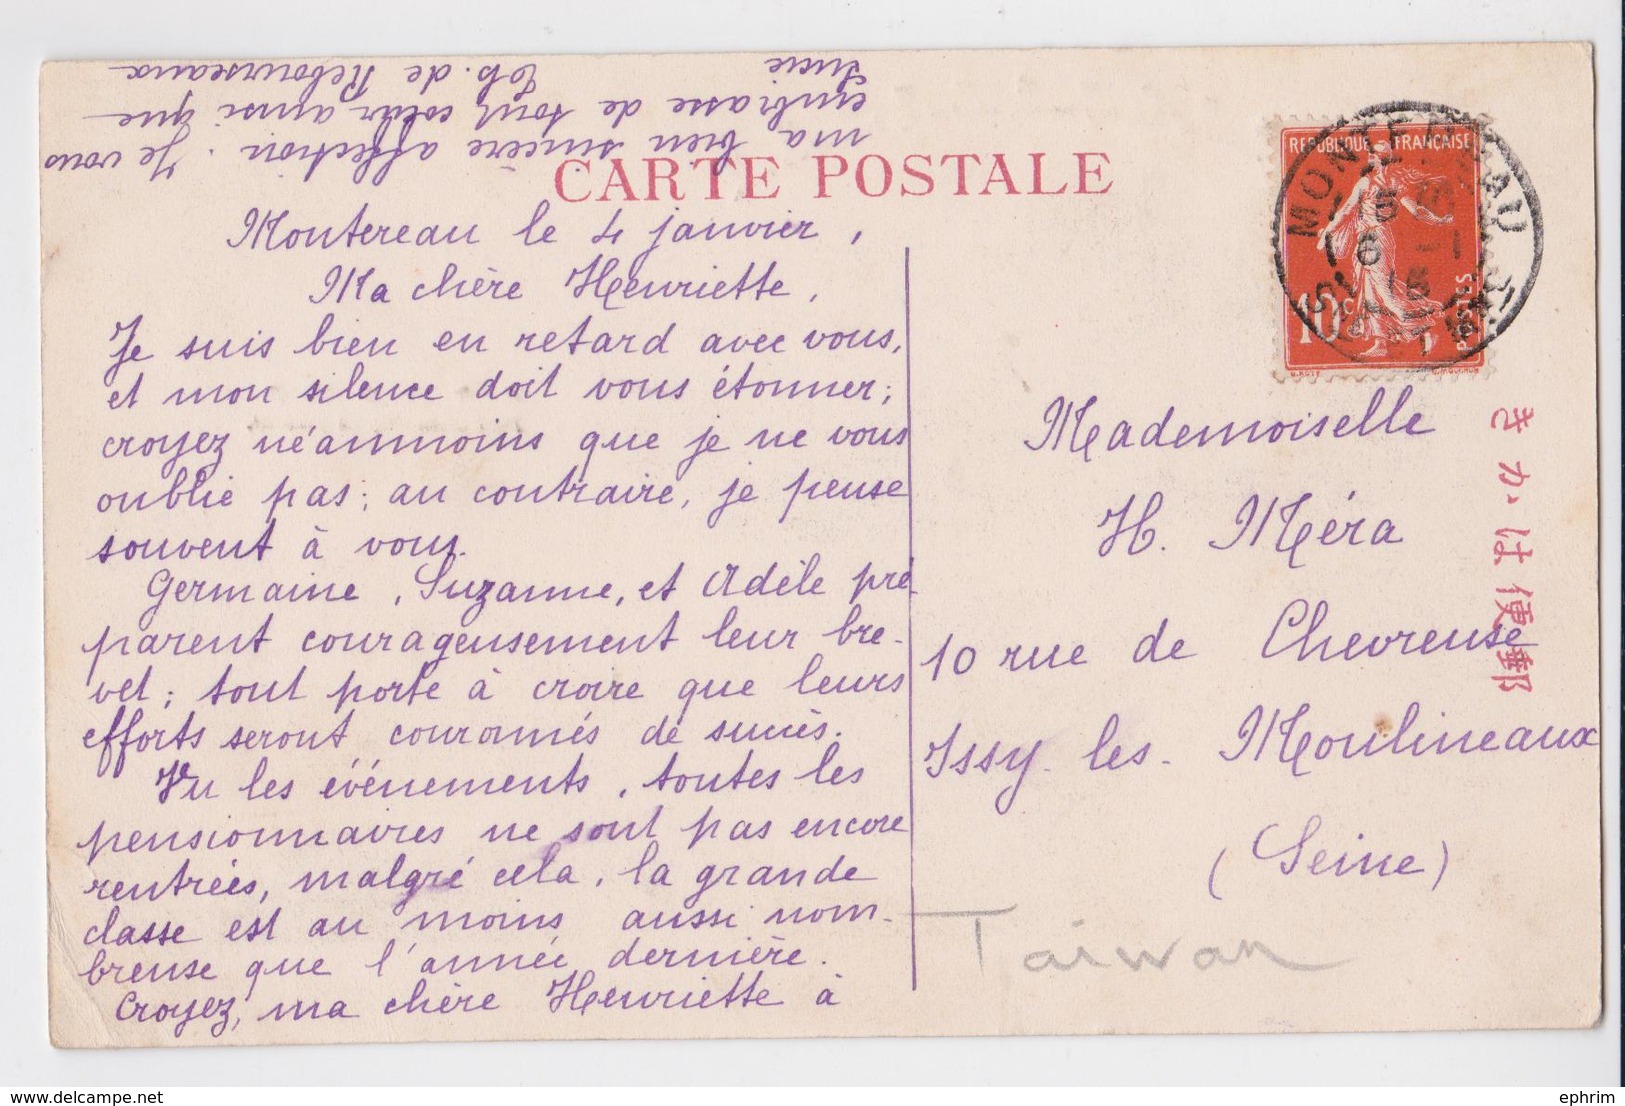 CARTE POSTALE
Montereau le 4 janvier,
Ma chère Henriette,
Je suis bien en retard avec vous,
et mon silence doit vous étonner;
croyez néanmoins que je ne vous
oublie pas; au contraire, je pense
souvent à vous.
Germaine, Suzanne, et Adèle pré-
parent courageusement leur bre-
vet; tout porte à croire que leurs
efforts seront couronnés de succès.
Vu les événements, toutes les
pensionnaires ne sont pas encore
rentrées, malgré cela, la grande
classe est au moins aussi nom-
breuse que l'année dernière.
Croyez, ma chère Henriette à
ma bien sincère affection. Je vous
embrasse de tout cœur ainsi que
Lucie
de Rebourseaux
RÉPUBLIQUE FRANÇAISE
10c
POSTES
MONTEREAU
6 -1
15
Mademoiselle
H. Méra
10 rue de Chevreuse
Issy-les-Moulineaux
(Seine)
Taiwan
きかは便郵
ephrim